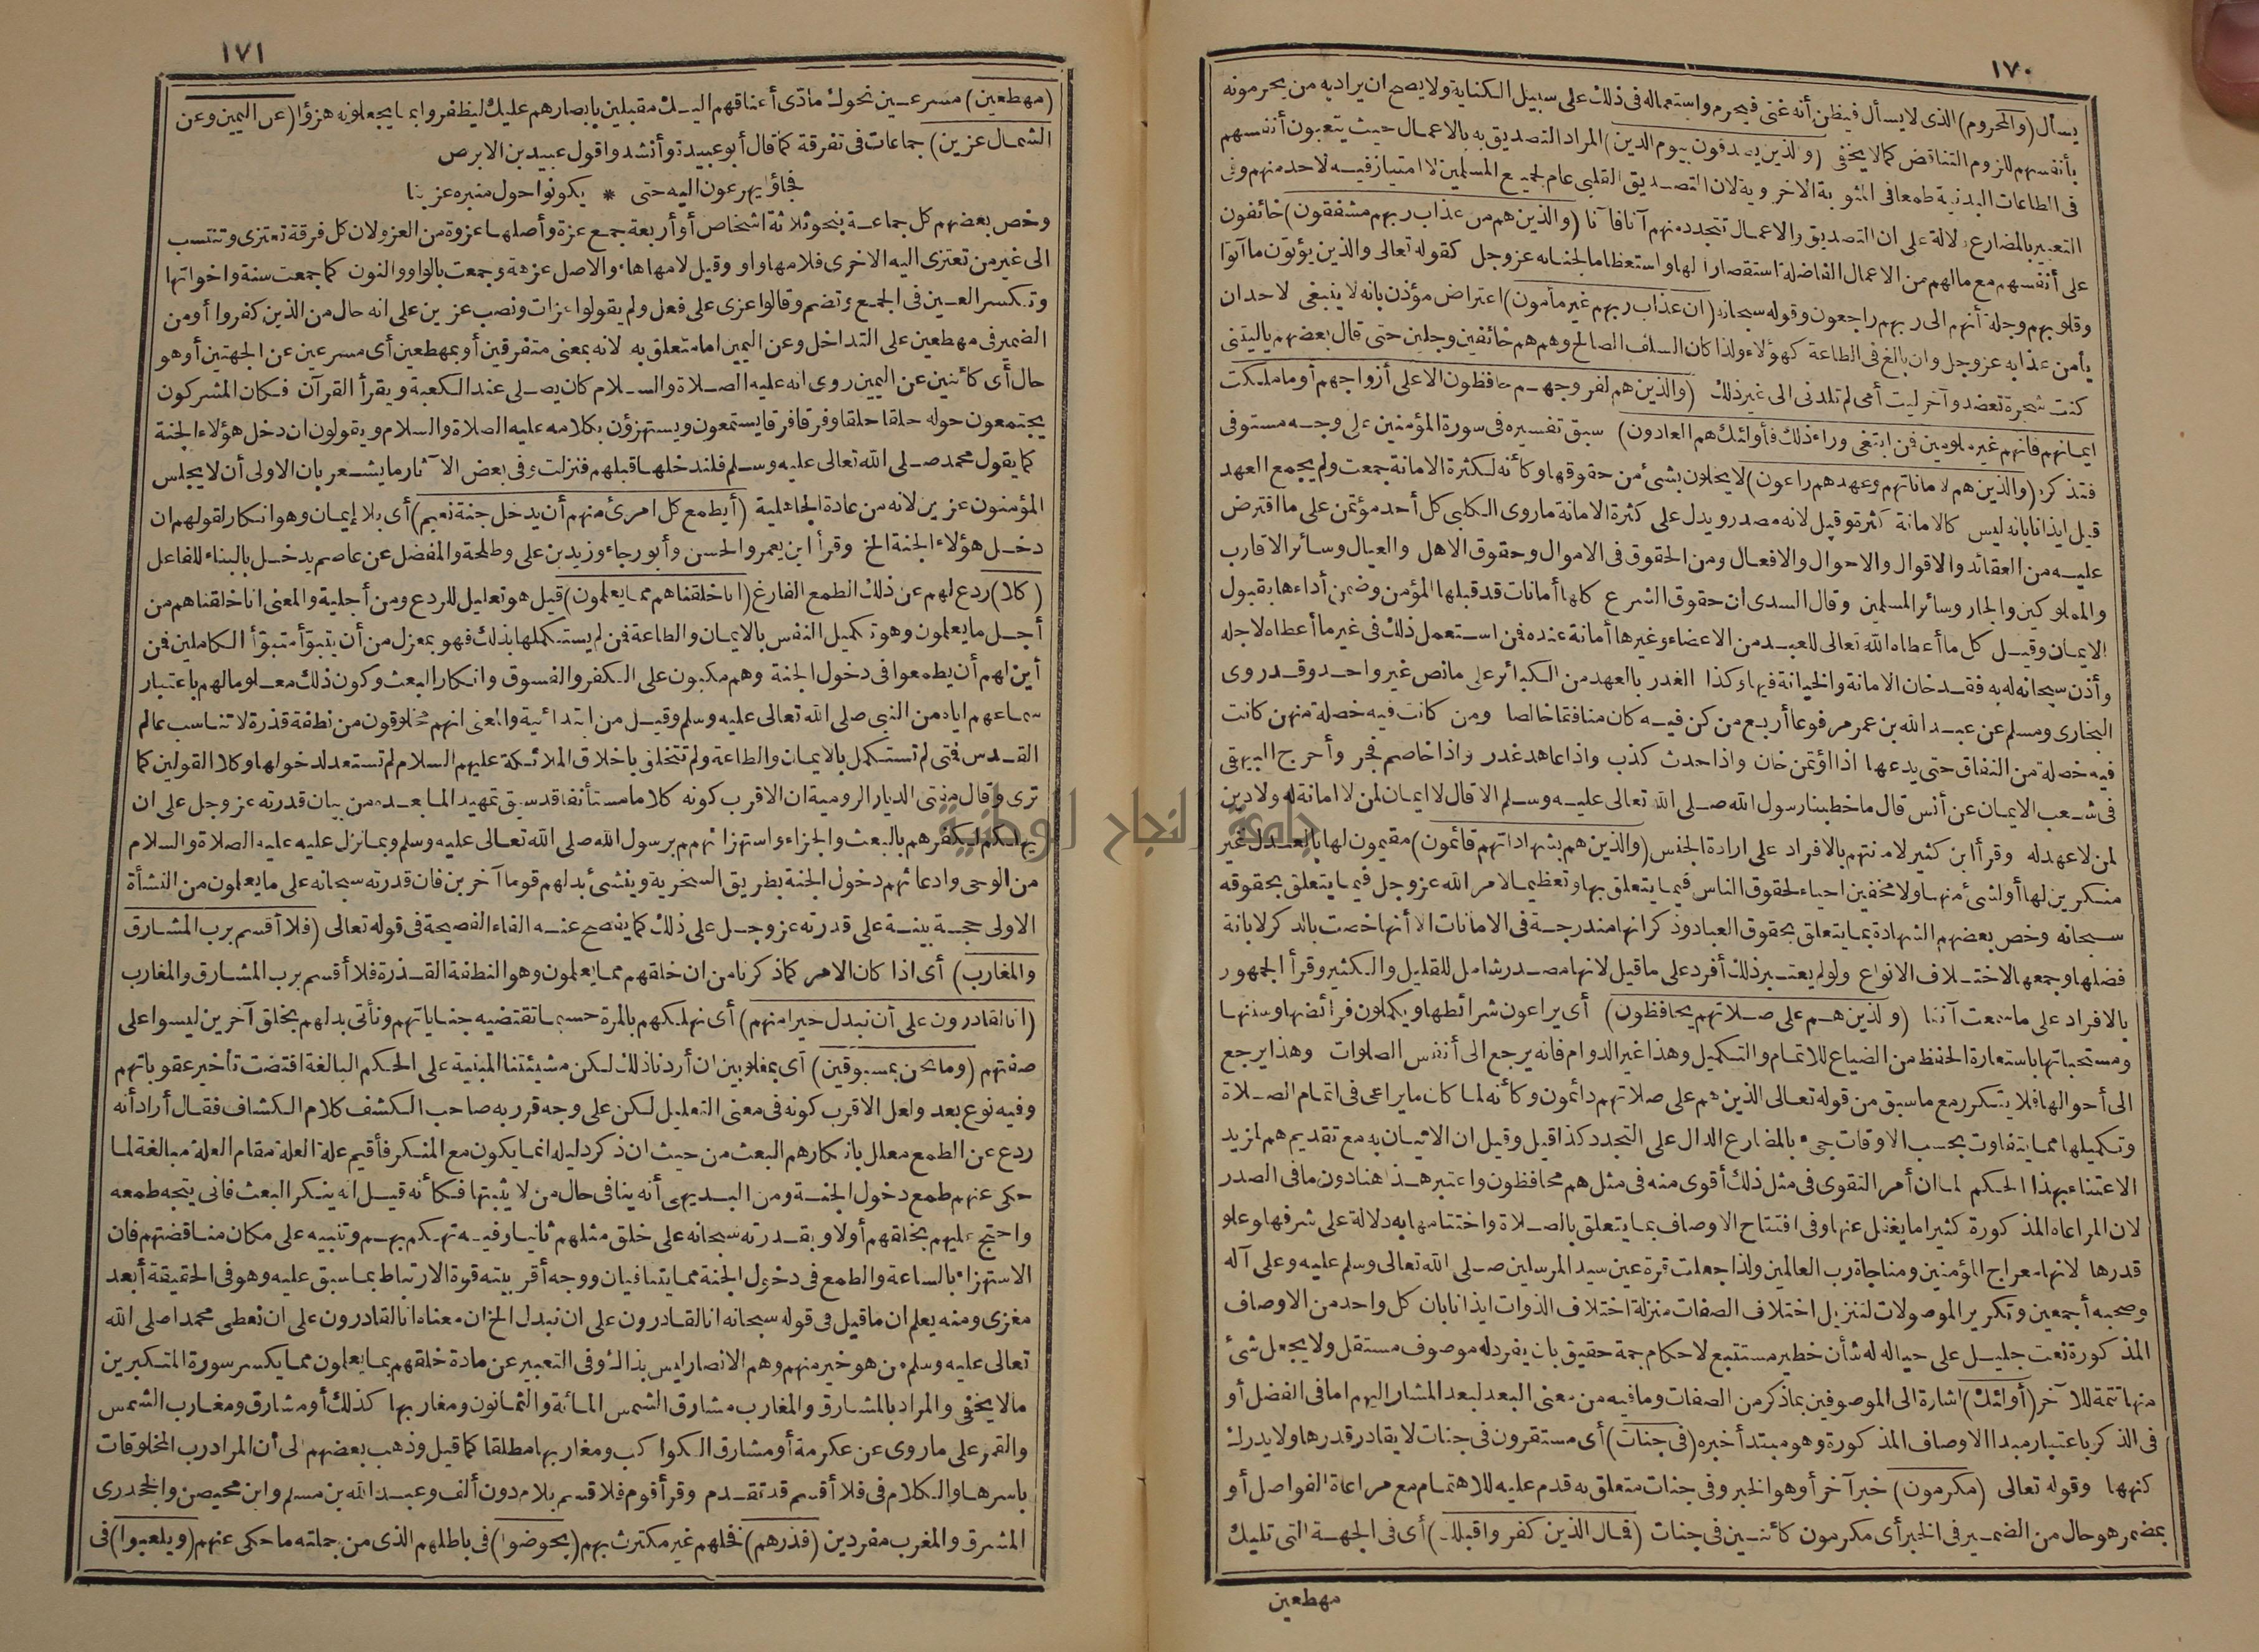 ١٧٠
يسأل (والمحروم) الذى لا يسأل فيظن أنه غنى فيحرم واستعماله فى ذلك على سبيل الكناية ولا يصح ان يراد به من يحرمونه
بأنفسهم للزوم التناقض كما لا يخفى (والذين يصدقون بيوم الدين) المراد التصديق به بالاعمال حيث يتعبون أنفسهم
فى الطاعات البدنية طمعا فى المثوبة الاخروية لان التصديق القلبى عام لجميع المسلمين لا امتياز فيه لاحد منهم وفى
التعبير بالمضارع دلالة على ان التصديق والاعمال تتجدد منهم آنا فآنا (والذين هم من عذاب ربهم مشفقون) خائفون
على أنفسهم مع مالهم من الاعمال الفاضلة استقصارا لها واستعظاما لجنابه عز وجل كقوله تعالى والذين يؤتون ما آتوا
وقلوبهم وجلة أنهم الى ربهم راجعون وقوله سبحانه (ان عذاب ربهم غير مأمون) اعتراض مؤذن بانه لا ينبغى لاحد ان
يأمن عذابه عز وجل وان بالغ فى الطاعة كهؤلاء ولذا كان السلف الصالح وهم هم خائفين وجلين حتى قال بعضهم يا ليتنى
كنت شجرة تعضد وآخر ليت أمى لم تلدنى الى غير ذلك (والذين هم لفروجهم حافظون الا على أزواجهم أو ما ملكت
ايمانهم فانهم غير ملومين فمن ابتغى وراء ذلك فأولئك هم العادون) سبق تفسيره فى سورة المؤمنين على وجه مستوفى
فتذكره (والذين هم لاماناتهم وعهدهم راعون) لا يخلون بشئ من حقوقها وكأنه لكثرة الامانة جمعت ولم يجمع العهد
قيل ايذانا بانه ليس كالامانة كثرة وقيل لانه مصدر ويدل على كثرة الامانة ما روى الكلبى كل أحد مؤتمن على ما افترض
عليه من العقائد والاقوال والاحوال والافعال ومن الحقوق فى الاموال وحقوق الاهل والعيال وسائر الاقارب
والمملوكين والجار وسائر المسلمين وقال السدى ان حقوق الشرع كلها أمانات قد قبلها المؤمن وضمن أداءها بقبول
الايمان وقيل كل ما أعطاه الله تعالى للعبد من الاعضاء وغيرها أمانة عنده فمن استعمل ذلك فى غير ما أعطاه لاجله
وأذن سبحانه له به فقد خان الامانة والخيانة فيها وكذا الغدر بالعهد من الكبائر على ما نص غير واحد وقد روى
البخارى ومسلم عن عبد الله بن عمر مرفوعا أربع من كن فيه كان منافقا خالصا ومن كانت فيه خصلة منهن كانت
فيه خصلة من النفاق حتى يدعها اذا اؤتمن خان واذا حدث كذب واذا عاهد غدر واذا خاصم فجر وأخرج البيهقى
فى شعب الايمان عن أنس قال ما خطبنا رسول الله صلى الله تعالى عليه وسلم الا قال لا ايمان لمن لا امانة له ولا دين
لمن لا عهد له وقرأ ابن كثير لامانتهم بالافراد على ارادة الجنس (والذين هم بشهاداتهم قائمون) مقيمون لها بالعدل غير
منكرين لها أو لشئ منها ولا مخفين احياء لحقوق الناس فيما يتعلق بها وتعظيما لامر الله عز وجل فيما يتعلق بحقوقه
سبحانه وخص بعضهم الشهادة بما يتعلق بحقوق العباد وذكر انها مندرجة فى الامانات الا أنها خصت بالذكر لابانة
فضلها وجمعها لاختلاف الانواع ولو لم يعتبر ذلك أفرد على ما قيل لانها مصدر شامل للقليل والكثير وقرأ الجمهور
بالافراد على ما سمعت آنفا (والذين هم على صلاتهم يحافظون) أى يراعون شرائطها ويكملون فرائضها وسننها
ومستحباتها باستعارة الحفظ من الضياع للاتمام والتكميل وهذا غير الدوام فانه يرجع الى أنفس الصلوات وهذا يرجع
الى أحوالها فلا يتكرر مع ما سبق من قوله تعالى الذين هم على صلاتهم دائمون وكأنه لما كان ما يراعى فى اتمام الصلاة
وتكميلها مما يتفاوت بحسب الاوقات جىء بالمضارع الدال على التجدد كذا قيل وقيل ان الاتيان به مع تقديم هم لمزيد
الاعتناء بهذا الحكم لما ان أمر التقوى فى مثل ذلك أقوى منه فى مثل هم محافظون واعتبر هذا هنا دون ما فى الصدر
لان المراعاة المذكورة كثيرا ما يغفل عنها وفى افتتاح الاوصاف بما يتعلق بالصلاة واختتامها به دلالة على شرفها وعلو
قدرها لانها معراج المؤمنين ومناجاة رب العالمين ولذا جعلت قرة عين سيد المرسلين صلى الله تعالى وسلم عليه وعلى آله
وصحبه أجمعين وتكرير الموصولات لتنزيل اختلاف الصفات منزلة اختلاف الذوات ايذانا بان كل واحد من الاوصاف
المذكورة نعت جليل على حياله له شأن خطير مستتبع لاحكام جمة حقيق بان يفرد له موصوف مستقل ولا يجعل شئ
منها تتمة للآخر (أولئك) اشارة الى الموصوفين بما ذكر من الصفات وما فيه من معنى البعد لبعد المشار اليهم اما فى الفضل أو
فى الذكر باعتبار مبدا الاوصاف المذكورة وهو مبتدأ خبره (فى جنات) أى مستقرون فى جنات لا يقادر قدرها ولا يدرك
كنهها وقوله تعالى (مكرمون) خبر آخر أو هو الخبر وفى جنات متعلق به قدم عليه للاهتمام مع مراعاة الفواصل أو
بمضمر هو حال من الضمير فى الخبر أى مكرمون كائنين فى جنات (فمال الذين كفروا قبلك) أى فى الجهة التى تليك
مهطعين
١٧١
(مهطعين) مسرعين نحوك مادّى أعناقهم اليك مقبلين بابصارهم عليك ليظفروا بما يجعلونه هزؤا (عن اليمين وعن
الشمال عزين) جماعات فى تفرقة كما قال أبو عبيدة وأنشدوا قول عبيد بن الابرص
فجاؤا يهرعون اليه حتى * يكونوا حول منبره عزينا
وخص بعضهم كل جماعة بنحو ثلاثة اشخاص أو أربعة جمع عزة وأصلها عزوة من العزو لان كل فرقة تعتزى وتنتسب
الى غير من تعتزى اليه الاخرى فلامها واو وقيل لامها هاء والاصل عزهة وجمعت بالواو والنون كما جمعت سنة واخواتها
وتكسر العين فى الجمع وتضم وقالوا عزى على فعل ولم يقولوا عزات ونصب عزين على انه حال من الذين كفروا أو من
الضمير فى مهطعين على التداخل وعن اليمين اما متعلق به لانه بمعنى متفرقين أو بمهطعين أى مسرعين عن الجهتين أو هو
حال أى كائنين عن اليمين روى انه عليه الصلاة والسلام كان يصلى عند الكعبة ويقرأ القرآن فكان المشركون
يجتمعون حوله حلقا حلقا وفرقا فرقا يستمعون ويستهزؤن بكلامه عليه الصلاة والسلام ويقولون ان دخل هؤلاء الجنة
كما يقول محمد صلى الله تعالى عليه وسلم فلندخلها قبلهم فنزلت وفى بعض الآثار ما يشعر بان الاولى أن لا يجلس
المؤمنون عزين لانه من عادة الجاهلية (أيطمع كل امرئ منهم أن يدخل جنة نعيم) أى بلا إيمان وهو انكار لقولهم ان
دخل هؤلاء الجنة الخ وقرأ ابن يعمر والحسن وأبو رجاء وزيد بن على وطلحة والمفضل عن عاصم يدخل بالبناء للفاعل
(كلا) ردع لهم عن ذلك الطمع الفارغ (انا خلقناهم مما يعلمون) قيل هو تعليل للردع ومن أجلية والمعنى انا خلقناهم من
أجل ما يعلمون وهو تكميل النفس بالايمان والطاعة فمن لم يستكملها بذلك فهو بمعزل من أن يتبوّأ متبوّأ الكاملين فمن
أين لهم أن يطمعوا فى دخول الجنة وهم مكبون على الكفر والفسوق وانكار البعث وكون ذلك معلوما لهم باعتبار
سماعهم اياه من النبى صلى الله تعالى عليه وسلم وقيل من ابتدائية والمعنى انهم مخلوقون من نطفة قذرة لا تناسب عالم
القدس فمتى لم تستكمل بالايمان والطاعة ولم تتخلق باخلاق الملائكة عليهم السلام لم تستعد لدخولها وكلا القولين كما
ترى وقال مفتى الديار الرومية ان الاقرب كونه كلاما مستأنفا قد سيق تمهيدا لما بعده من بيان قدرته عز وجل على ان
يهلكهم لكفرهم بالبعث والجزاء واستهزائهم برسول الله صلى الله تعالى عليه وسلم وبما نزل عليه عليه الصلاة والسلام
من الوحى وادعائهم دخول الجنة بطريق السخرية وينشئ بدلهم قوما آخرين فان قدرته سبحانه على ما يعلمون من النشأة
الاولى حجة بينة على قدرته عز وجل على ذلك كما يفصح عنه الفاء الفصيحة فى قوله تعالى (فلا أقسم برب المشارق
والمغارب) أى اذا كان الامر كما ذكرنا من ان خلقهم مما يعلمون وهو النطفة القذرة فلا أقسم برب المشارق والمغارب
(انا لقادرون على أن نبدل خيرا منهم) أى نهلكهم بالمرة حسبما تقتضيه جناياتهم ونأتى بدلهم بخلق آخرين ليسوا على
صفتهم (وما نحن بمسبوقين) أى بمغلوبين ان أردنا ذلك لكن مشيئتنا المبنية على الحكم البالغة اقتضت تأخير عقوباتهم
وفيه نوع بعد ولعل الاقرب كونه فى معنى التعليل لكن على وجه قرر به صاحب الكشف كلام الكشاف فقال أراد أنه
ردع عن الطمع معلل بانكارهم البعث من حيث ان ذكر دليله انما يكون مع المنكر فأقيم علة العلة مقام العلة مبالغة لما
حكى عنهم طمع دخول الجنة ومن البديهى أنه ينافى حال من لا يثبتها فكأنه قيل انه ينكر البعث فانى يتجه طمعه
واحتج عليهم بخلقهم أولا وبقدرته سبحانه على خلق مثلهم ثانيا وفيه تهكم بهم وتنبيه على مكان مناقضتهم فان
الاستهزاء بالساعة والطمع فى دخول الجنة مما يتنافيان ووجه أقربيته قوة الارتباط بما سبق عليه وهو فى الحقيقة أبعد
مغزى ومنه يعلم ان ما قيل فى قوله سبحانه انا لقادرون على ان نبدل الخ ان معناه انا لقادرون على ان نعطى محمدا صلى الله
تعالى عليه وسلم من هو خير منهم وهم الانصار ليس بذاك وفى التعبير عن مادة خلقهم بما يعلمون مما يكسر سورة المتكبرين
ما لا يخفى والمراد بالمشارق والمغارب مشارق الشمس المائة والثمانون ومغاربها كذلك أو مشارق ومغارب الشمس
والقمر على ما روى عن عكرمة أو مشارق الكواكب ومغاربها مطلقا كما قيل وذهب بعضهم الى أن المراد رب المخلوقات
باسرها والكلام فى فلا أقسم قد تقدم وقرأ قوم فلاقسم بلام دون ألف وعبد الله بن مسلم وابن محيصن والجحدرى
المشرق والمغرب مفردين (فذرهم) فخلهم غير مكترث بهم (يخوضوا) فى باطلهم الذى من جملته ما حكى عنهم (ويلعبوا) فى
جامعة النجاح الوطنية